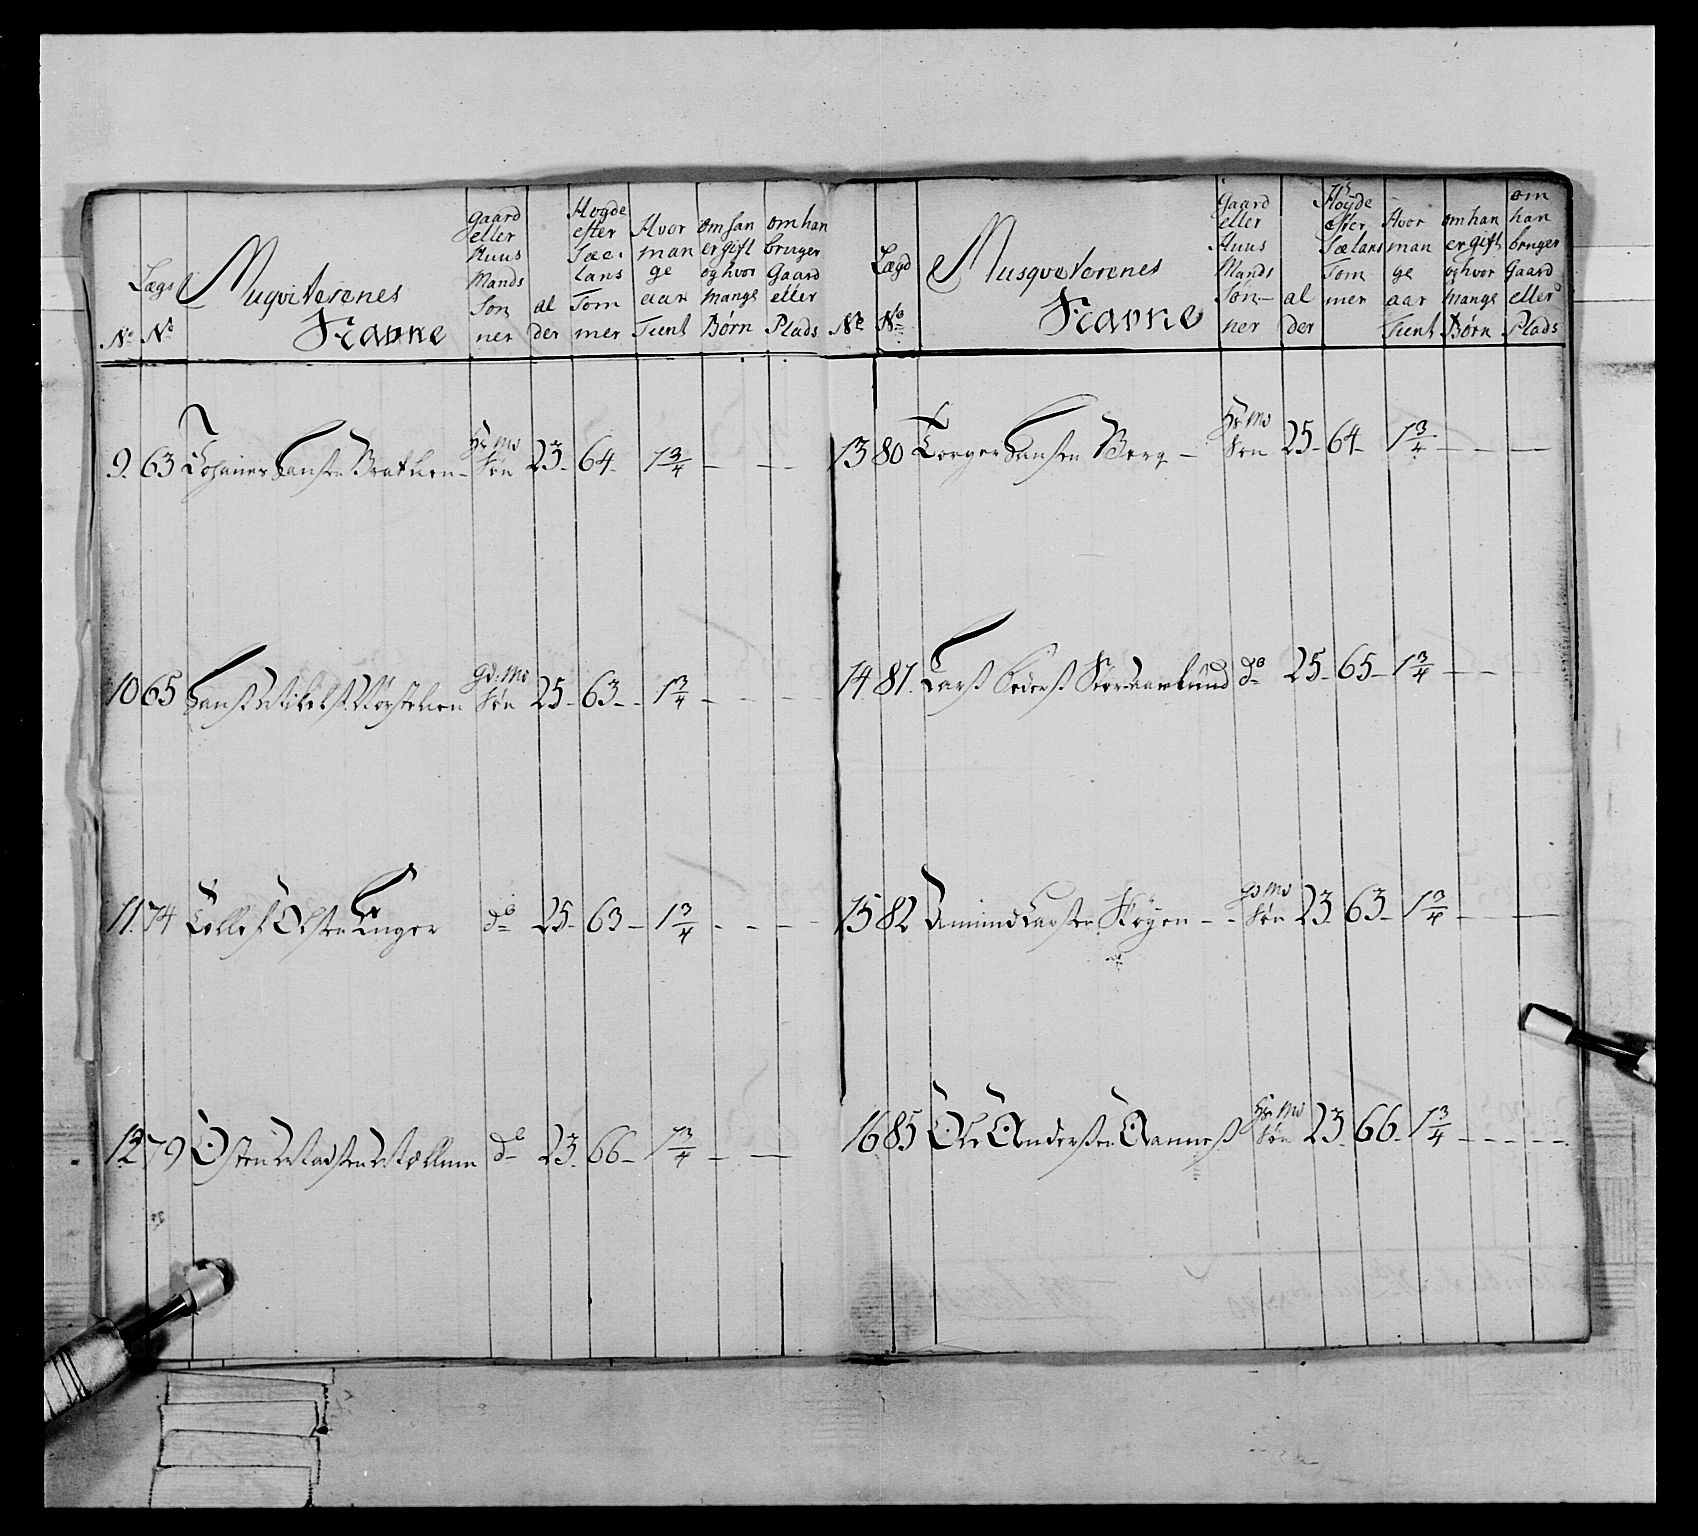 Lægd
No
No
Muqveterenes
Navne
gaard
eller
Huus
Mands
Søn
ner
al
der
Høyde
efter
Sæe
lans
Tom
mer
Hvor
man
ge
aar
Tient
om han
er gift
og hvor
mange
Børn
om han
bruger
Gaard
eller
Plads
9. 63 Johannes Hansen Brathen - Hs Ms Søn 23- 64- 1 3/4 - - -
10 65 Hans Mikels. Børstelien gd: Ms Søn 25- 63- 1 3/4 - - -
11. 74 Tollef Olsen Unger do 25- 63- 1 3/4 - - -
12 79 Østen Madsen Mællum do 23. 66- 1 3/4 - -
No
Lægd
No
Musqveterenes
Navne
Gaard
eller
Huus
Mands
Søn-
ner
al
der
Høyde
efter
Sælans
Tom
mer
Hvor
man
ge
aar
Tient
om han
er gift
og hvor
mange
Børn
om
han
bruger
Gaard
eller
Plads
13 80 Torger Hansen Berg - Hs Ms Søn 25- 64- 1 3/4 - - -
14 81. Lars Peders do 25- 65- 1 3/4 - - -
15 82 Amund Larsen Skøyen - - gd Ms Søn 23 63- 1 3/4 - - -
16 85 Ole Andersen Aannes Hs Ms Søn 23. 66- 1 3/4 - - - - -